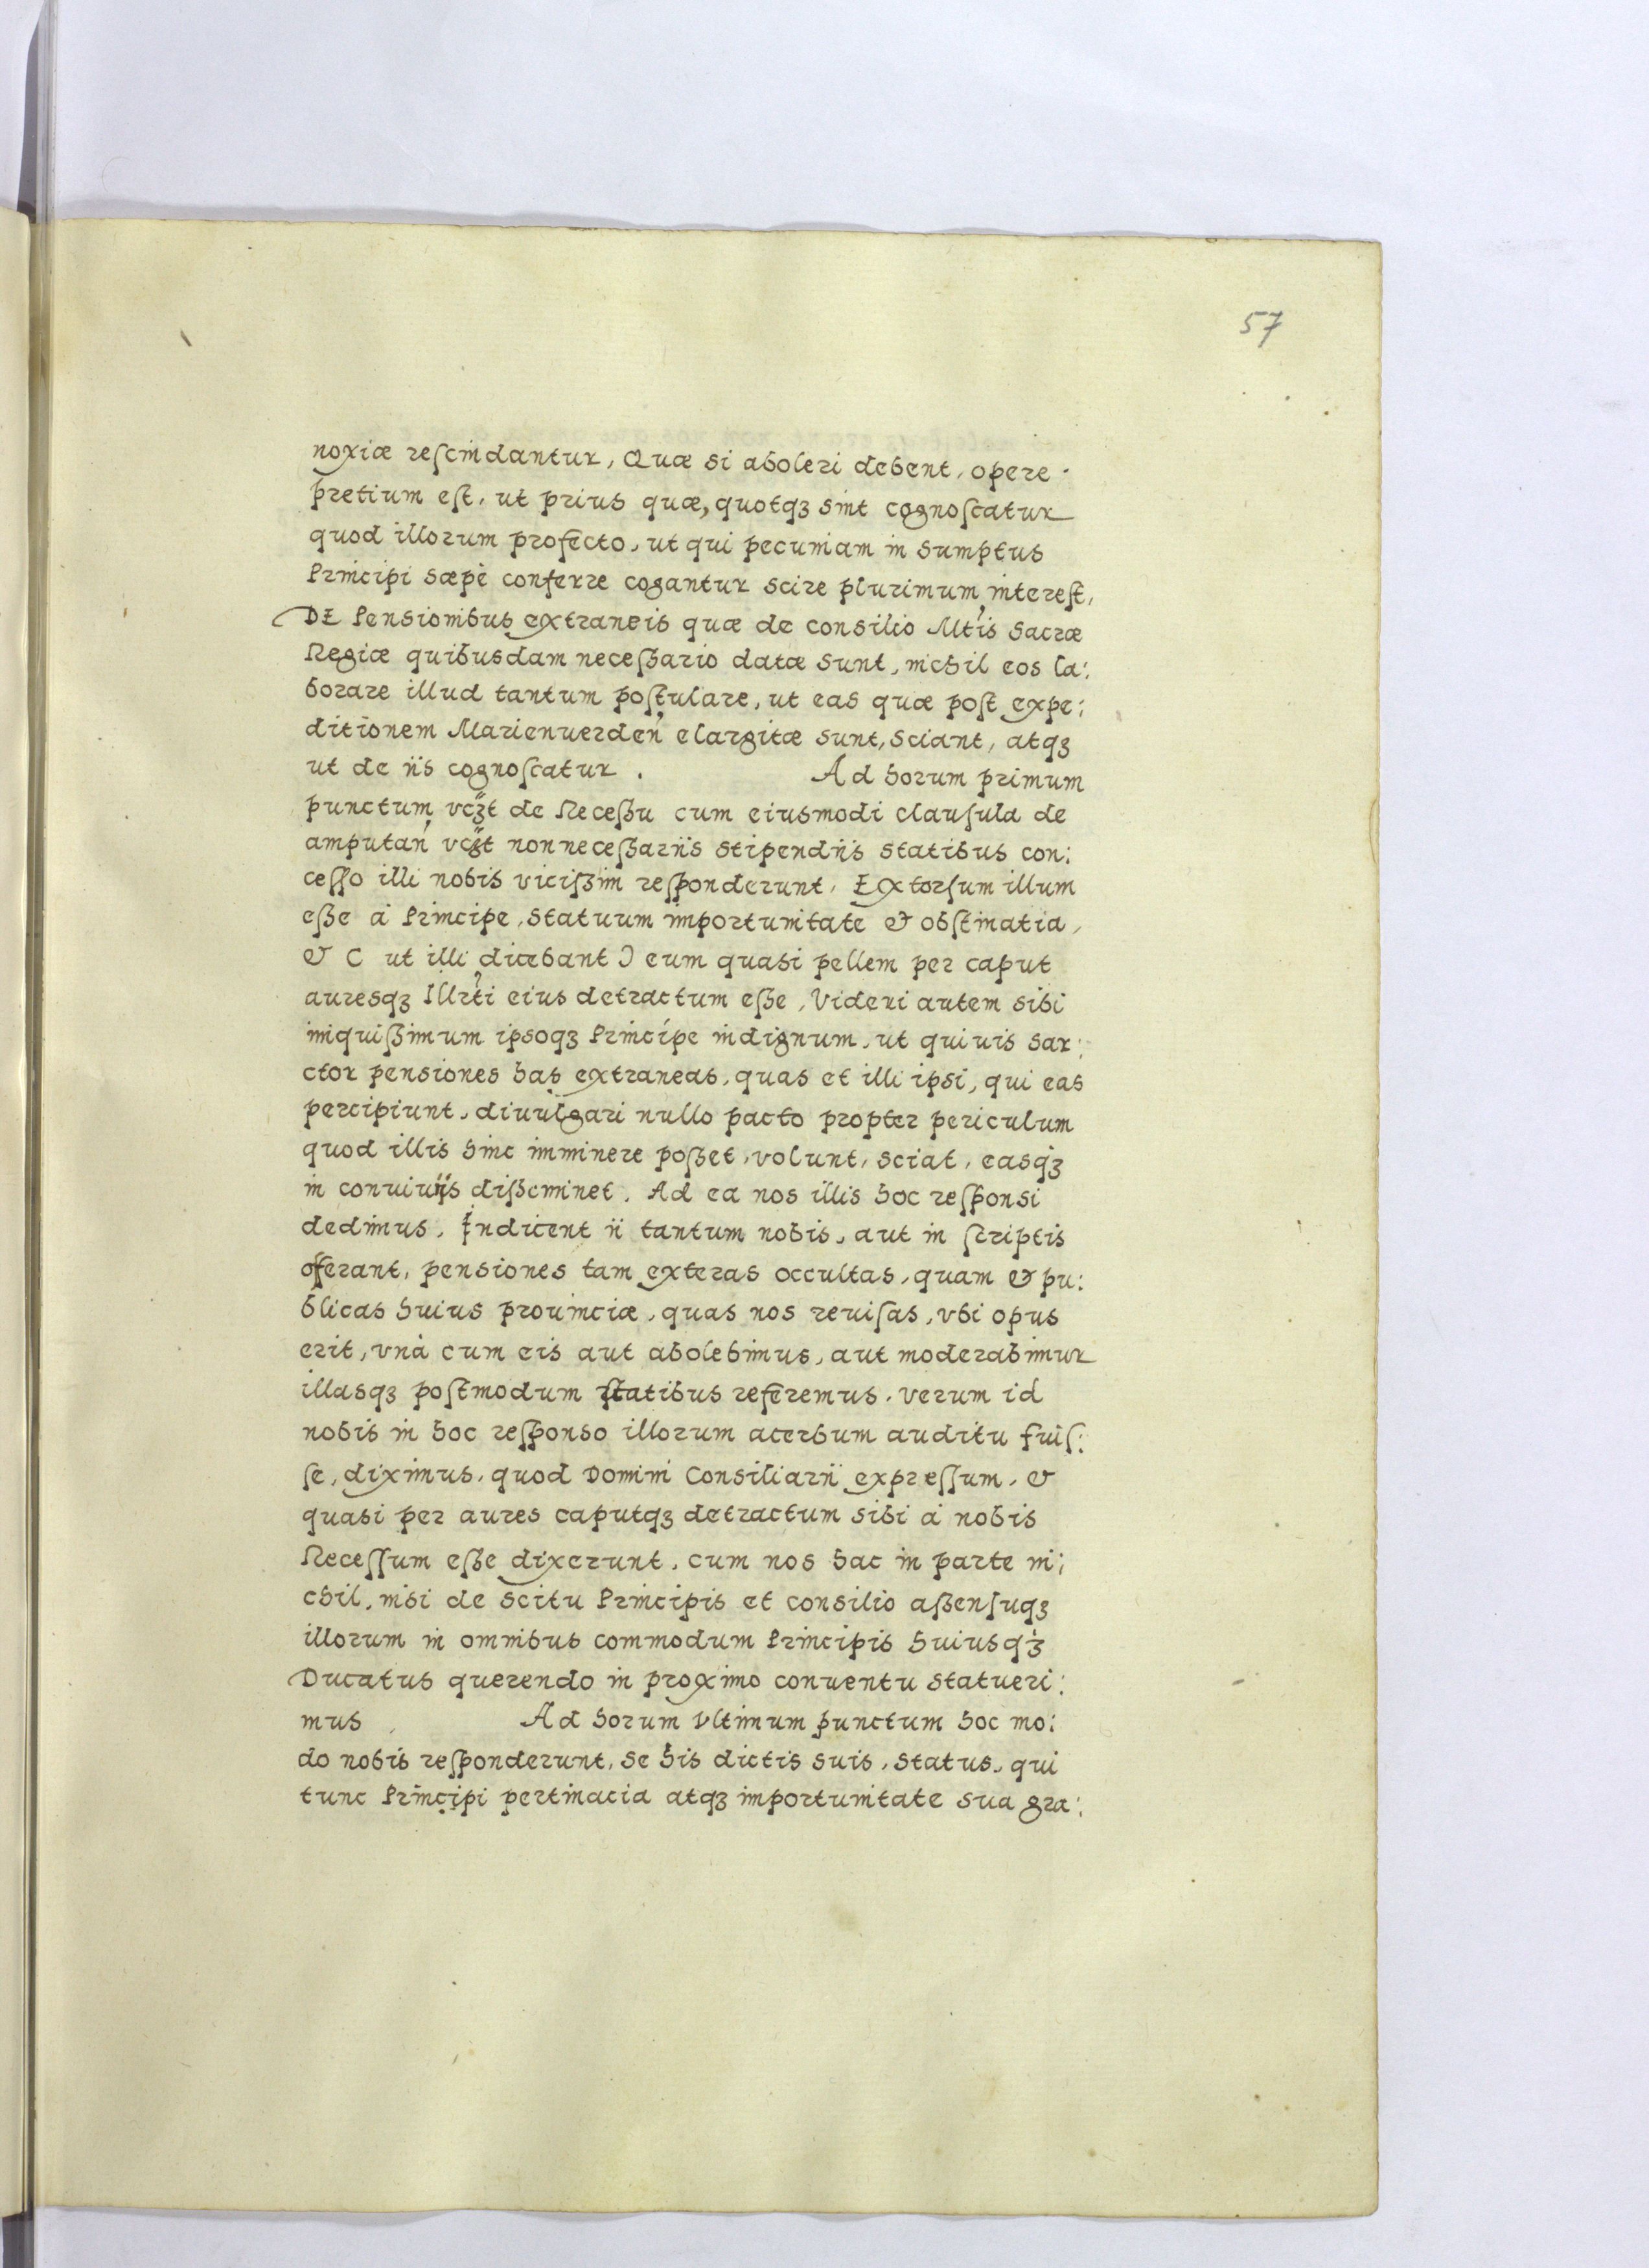 57
noxiæ reſcindantur, Quæ si aboleri debent, opere
pretium eſt, ut prius quæ, quotqꝫ sint cognoſcatur
quod illorum profecto, ut qui pecuniam in sumptus
Principi sæpè conferre cogantur scire plurimum interest,
DE Pensionibus extraneis quæ de consilio Mtis Sacræ
Regiæ quibusdam neceßario datæ sunt, nichil eos la:
borare illud tantum poſtulare, ut eas quæ poſt expe:
ditionem Marienuerden elargitæ sunt, sciant, atqꝫ
ut de iis cognoſcatur. Ad horum primum
punctum vcꝫt de Receßu cum eiusmodi clauſula de
amputan vcꝫt non neceßariis stipendiis statibus con:
ceſſo illi nobis vicißim reſponderunt, Extorſum illum
eße à Principe, statuum importunitate & obſtinatia,
& ( ut illi dicebant ) eum quasi pellem per caput
auresqꝫ Illrti eius detractum eße, Videri autem sibi
iniquißimum ipsoqꝫ Principe indignum, ut quiuis sar:
ctor pensiones has extraneas, quas et illi ipsi, qui eas
percipiunt, diuulgari nullo pacto propter periculum
quod illis hinc imminere poßet, volunt, sciat, easqꝫ
in conuiuiis dißeminet. Ad ea nos illis hoc reſponsi
dedimus, Indicent ii tantum nobis, aut in ſcriptis
offerant, pensiones tam exteras occultas, quam & pu:
blicas huius prouinciæ, quas nos reuiſas, vbi opus
erit, vnà cum eis aut abolebimus, aut moderabimur
illasqꝫ poſtmodum ſtatibus referemus. verum id
nobis in hoc reſponso illorum acerbum auditu fuiſ:
ſe, diximus, quod Domini Consiliarii expreſſum, &
quasi per aures caputqꝫ detractum sibi à nobis
Receſſum eße dixerunt, cum nos hac in parte ni:
chil, nisi de scitu Principis et consilio aßenſuqꝫ
illorum in omnibus commodum Principis huiusqꝫ
Ducatus querendo in proximo conuentu statueri:
mus Ad horum Vltimum punctum hoc mo:
do nobis reſponderunt, se his dictis suis, status, qui
tunc Principi pertinacia atqꝫ importunitate sua gra: